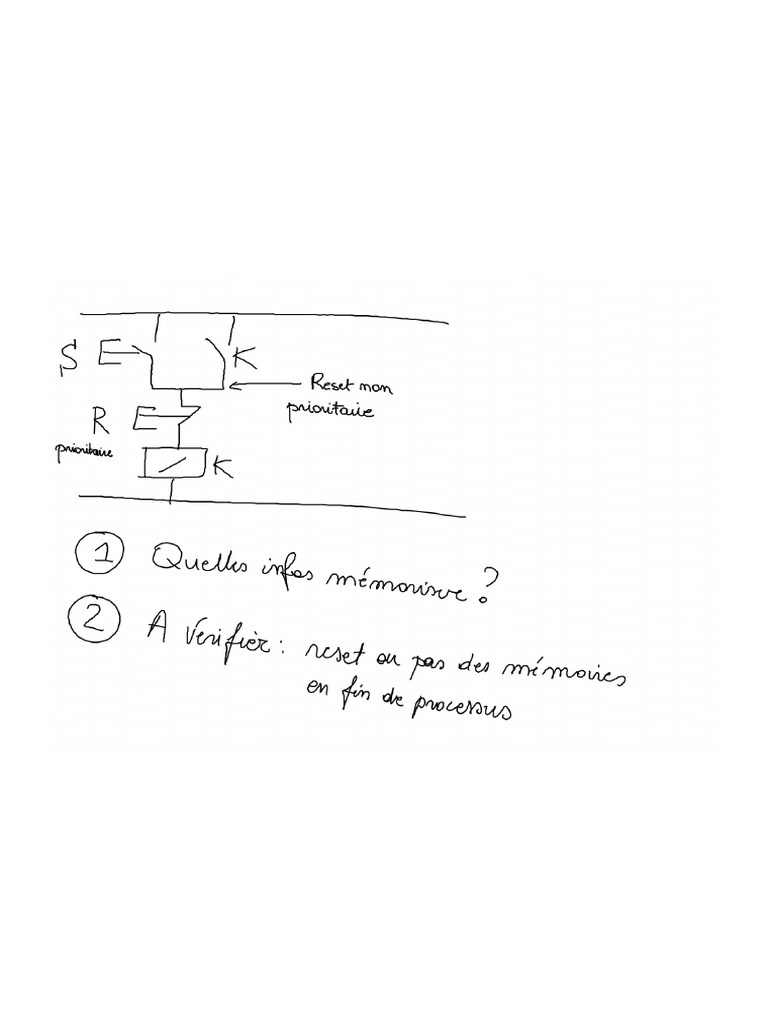 S
K
Reset non
prioritaire
R
prioritaire
K
1 Quelles infos mémoriser ?
2 A vérifier : reset ou pas des mémoires
en fin de processus